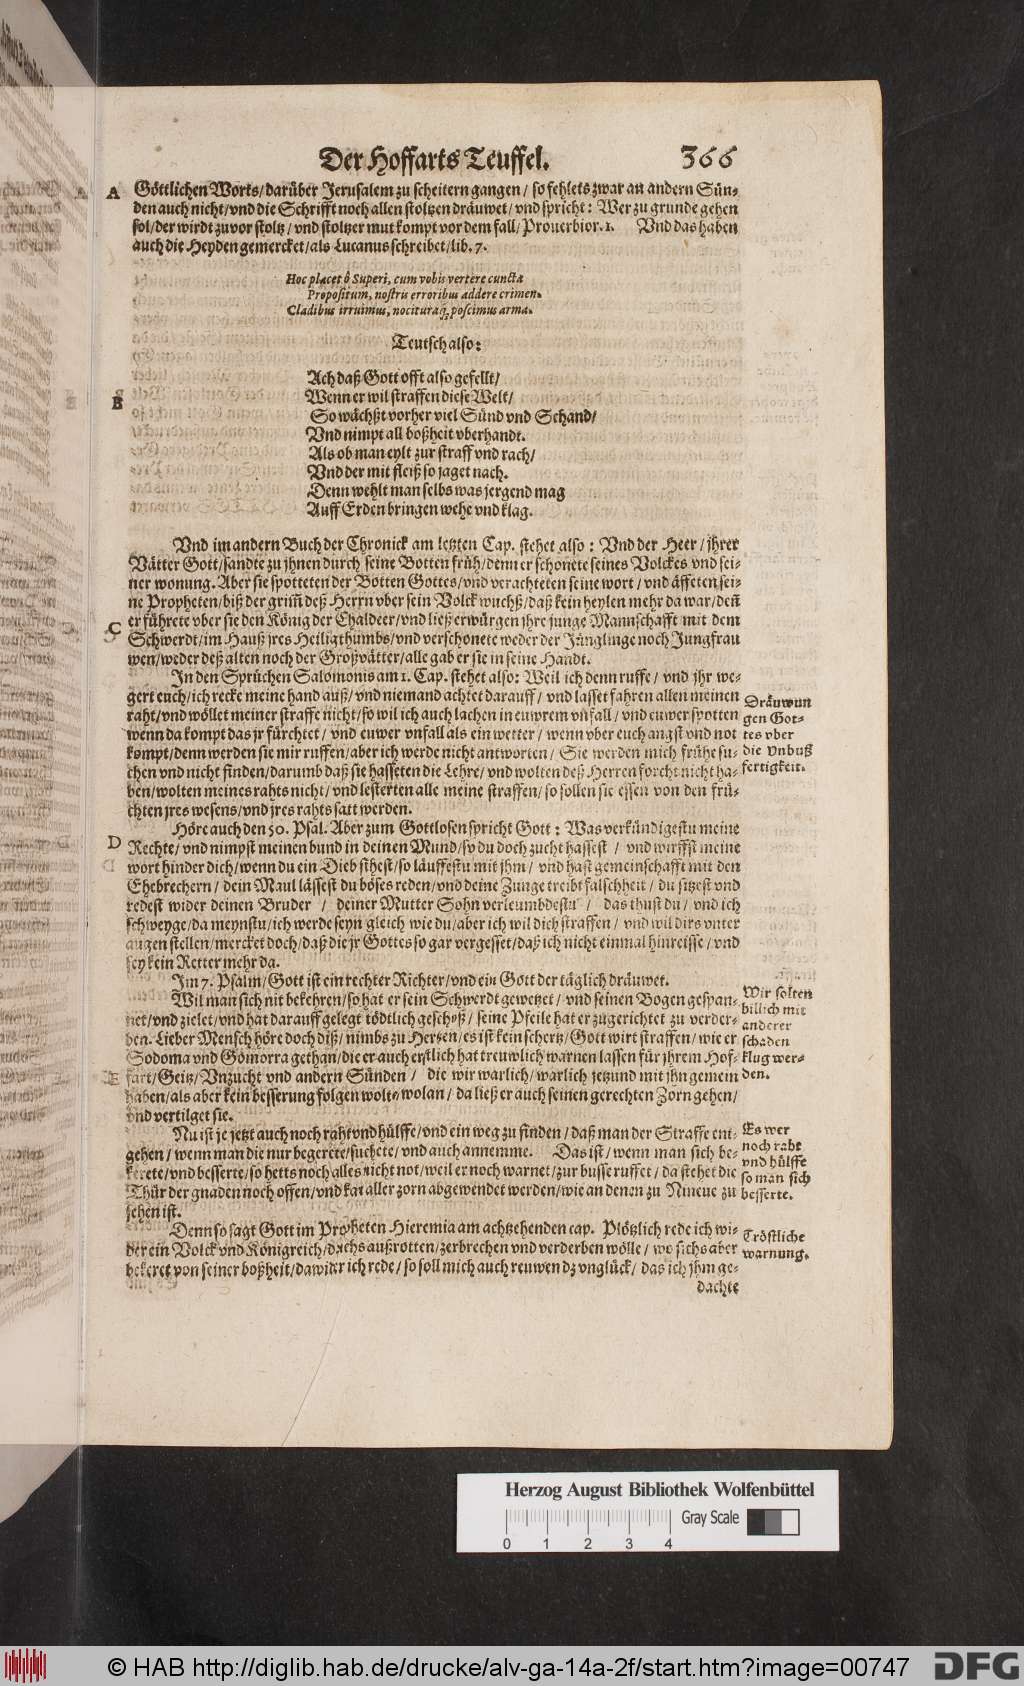 Der Hoffarts Teuffel. 366
A Göttlichen Worts/ darüber Jerusalem zu scheitern gangen / so fehlets zwar an andern Sün-
den auch nicht/vnd die Schrifft noch allen stoltzen dräuwet/ vnd spricht: Wer zu grunde gehen
sol/der wirdt zuvor stoltz/ vnd stoltzer mut kompt vor dem fall/ Prouerbior. 1. Vnd das haben
auch die Heyden gemercket/als Lucanus schreibet/lib. 7.
Hoc placet ô Superi, cum vobis vertere cuncta
Propositum, nostris erroribus addere crimen.
Cladibus irruimus, nocituraq; poscimus arma.
Teutsch also:
Ach daß Gott offt also gefellt/
Wenn er wil straffen diese Welt/
B So wächßt vorher viel Sünd vnd Schand/
Vnd nimpt all boßheit vberhandt.
Als ob man eylt zur straff vnd rach/
Vnd der mit fleiß so jaget nach.
Denn wehlt man selbs was jergend mag
Auff Erden bringen wehe vnd klag.
Vnd im andern Buch der Chronick am letzten Cap. stehet also: Vnd der Herr / jhrer
Vätter Gott/sandte zu jhnen durch seine Botten früh/denn er schonete seines Volckes vnd sei-
ner wonung. Aber sie spotteten der Botten Gottes/vnd verachteten seine wort / vnd äffeten sei-
ne Propheten/biß der grim̃ deß Herrn vber sein Volck wuchß/daß kein heylen mehr da war/deñ
er führete vber sie den König der Chaldeer/vnd ließ erwürgen jhre junge Mannschafft mit dem
C Schwerdt/im Hauß jres Heiligthumbs/vnd verschonete weder der Jünglinge noch Jungfrau
wen/weder deß alten noch der Großvätter/alle gab er sie in seine Handt.
In den Sprüchen Salomonis am 1. Cap. stehet also: Weil ich denn ruffe/ vnd jhr we-
gert euch/ich recke meine hand auß/ vnd niemand achtet darauff/ vnd lasset fahren allen meinen
raht/vnd wöllet meiner straffe nicht/so wil ich auch lachen in euwrem vnfall / vnd euwer spotten
wenn da kompt das jr fürchtet/ vnd euwer vnfall als ein wetter / wenn vber euch angst vnd not
kompt/denn werden sie mir ruffen/aber ich werde nicht antworten / Sie werden mich frühe su-
chen vnd nicht finden/darumb daß sie hasseten die Lehre/ vnd wolten deß Herren forcht nicht ha-
ben/wolten meines rahts nicht/ vnd lesterten alle meine straffen/ so sollen sie essen von den frü-
chten jres wesens/vnd jres rahts satt werden.
Dräuwun
gen Got-
tes vber
die Vnbuß
fertigkeit.
Höre auch den 50. Psal. Aber zum Gottlosen spricht Gott: Was verkündigestu meine
D Rechte/ vnd nimpst meinen bund in deinen Mund/so du doch zucht hassest / vnd wirffst meine
wort hinder dich/wenn du ein Dieb sihest/so läuffestu mit jhm/ vnd hast gemeinschafft mit den
Ehebrechern / dein Maul lässest du böses reden/vnd deine Zunge treibt falschheit / du sitzest vnd
redest wider deinen Bruder / deiner Mutter Sohn verleumbdestu / das thust du / vnd ich
schweyge/da meynstu/ich werde seyn gleich wie du/aber ich wil dich straffen / vnd wil dirs vnter
augen stellen/mercket doch/daß die jr Gottes so gar vergesset/daß ich nicht einmal hinreisse / vnd
sey kein Retter mehr da.
Im 7. Psalm/Gott ist ein rechter Richter/vnd ein Gott der täglich dräuwet.
Wil man sich nit bekehren/so hat er sein Schwerdt gewetzet / vnd seinen Bogen gespan-
net/vnd zielet/vnd hat darauff gelegt tödtlich geschoß/ seine Pfeile hat er zugerichtet zu verder-
ben. Lieber Mensch höre doch diß/ nimbs zu Hertzen/es ist kein schertz/Gott wirt straffen/ wie er
Sodoma vnd Gomorra gethan/die er auch erstlich hat treuwlich warnen lassen für jhrem Hof-
E fart/Geitz/Vnzucht vnd andern Sünden / die wir warlich/warlich jetzund mit jhn gemein
haben/als aber kein besserung folgen wolt/ wolan/ da ließ er auch seinen gerechten Zorn gehen/
vnd vertilget sie.
Wir solten
billich mit
anderer
schaden
klug wer-
den.
Nu ist je jetzt auch noch raht vnd hülffe/vnd ein weg zu finden / daß man der Straffe ent-
gehen / wenn man die nur begerete/suchete/ vnd auch annemme. Das ist/ wenn man sich be-
kerete/vnd besserte/so hetts noch alles nicht not/weil er noch warnet/zur busse ruffet/ da stehet die
Thür der gnaden noch offen/vnd kan aller zorn abgewendet werden/wie an denen zu Nineue zu
sehen ist.
Es wer
noch raht
vnd hülffe
so man sich
besserte.
Denn so sagt Gott im Propheten Hieremia am achtzehenden cap. Plötzlich rede ich wi-
der ein Volck vnd Königreich/dz ichs außrotten/zerbrechen vnd verderben wölle/ wo sichs aber
bekeret von seiner boßheit/dawider ich rede/ so soll mich auch reuwen dz vnglück/ das ich jhm ge-
dachte
Tröstliche
warnung.
Herzog August Bibliothek Wolfenbüttel
0 1 2 3 4 Gray Scale
© HAB http://diglib.hab.de/drucke/alv-ga-14a-2f/start.htm?image=00747 DFG